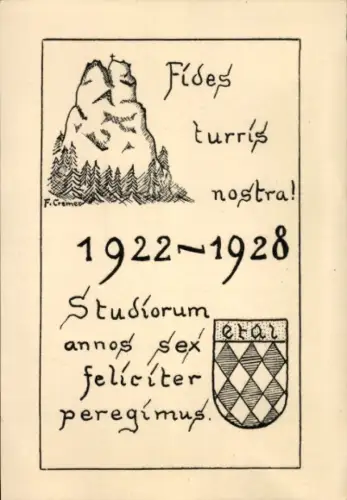 Fides
turris
nostra!
F. Cremer
1922~1928
Studiorum
annos sex
feliciter
peregimus.
etal